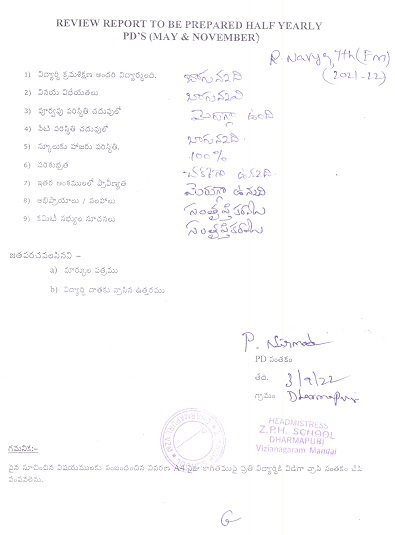 REVIEW REPORT TO BE PREPARED HALF YEARLY
PD'S (MAY & NOVEMBER)
R. Navya, 7th (EM)
(2021-22)
1) విద్యార్థి క్రమశిక్షణ బాగున్నది
2) వినయ విధేయతలు బాగున్నవి
3) పూర్వపు పరిస్థితి చదువులో మెరుగ్గా ఉంది
4) నేటి పరిస్థితి చదువులో బాగున్నది.
5) స్కూలుకు హాజరు పరిస్థితి. 100%
6) పరిశుభ్రత ఉన్నది.
7) ఇతర అంశములలో ప్రావీణ్యత మెరుగ్గా ఉన్నది
8) అభిప్రాయాలు / సలహాలు సంతృప్తికరము
9) కమిటీ సభ్యుల సూచనలు సంతృప్తికరము
జతపరచవలసినవి -
a) మార్కుల పత్రము
b) విద్యార్థి దాతకు వ్రాసిన ఉత్తరము
P. Nirmala
PD సంతకం
తేది. 3/9/22
గ్రామం Dharmapuri
HEADMISTRESS
Z.P.H. SCHOOL
DHARMAPURI
Vizianagaram Mandal
గమనిక:-
పైన సూచించిన విషయములకు సంబంధించిన వివరణ A4 సైజు కాగితముపై ప్రతి విద్యార్థికి విడిగా వ్రాసి సంతకం చేసి
పంపవలెను.